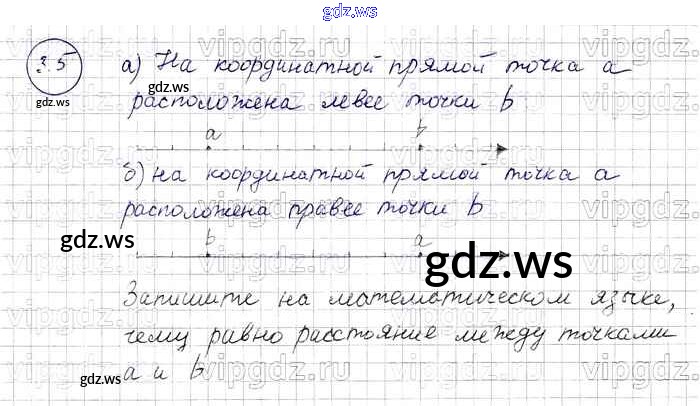 gdz.ws
3.5
а) На координатной прямой точка a
расположена левее точки b
a b
б) на координатной прямой точка a
расположена правее точки b
b a
Запишите на математическом языке,
чему равно расстояние между точками
a и b
gdz.ws
gdz.ws
gdz.ws
gdz.ws
gdz.ws
vipgdz